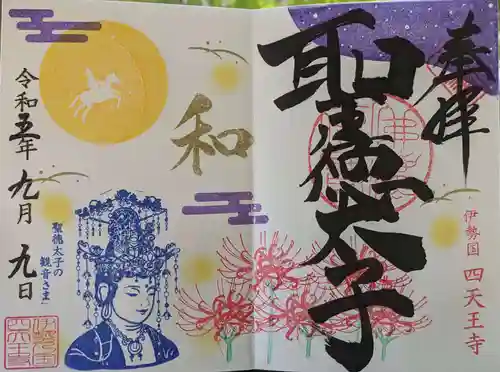 奉拝
聖徳太子
伊勢国 四天王寺
和
令和五年九月九日
聖徳太子の
観音さま